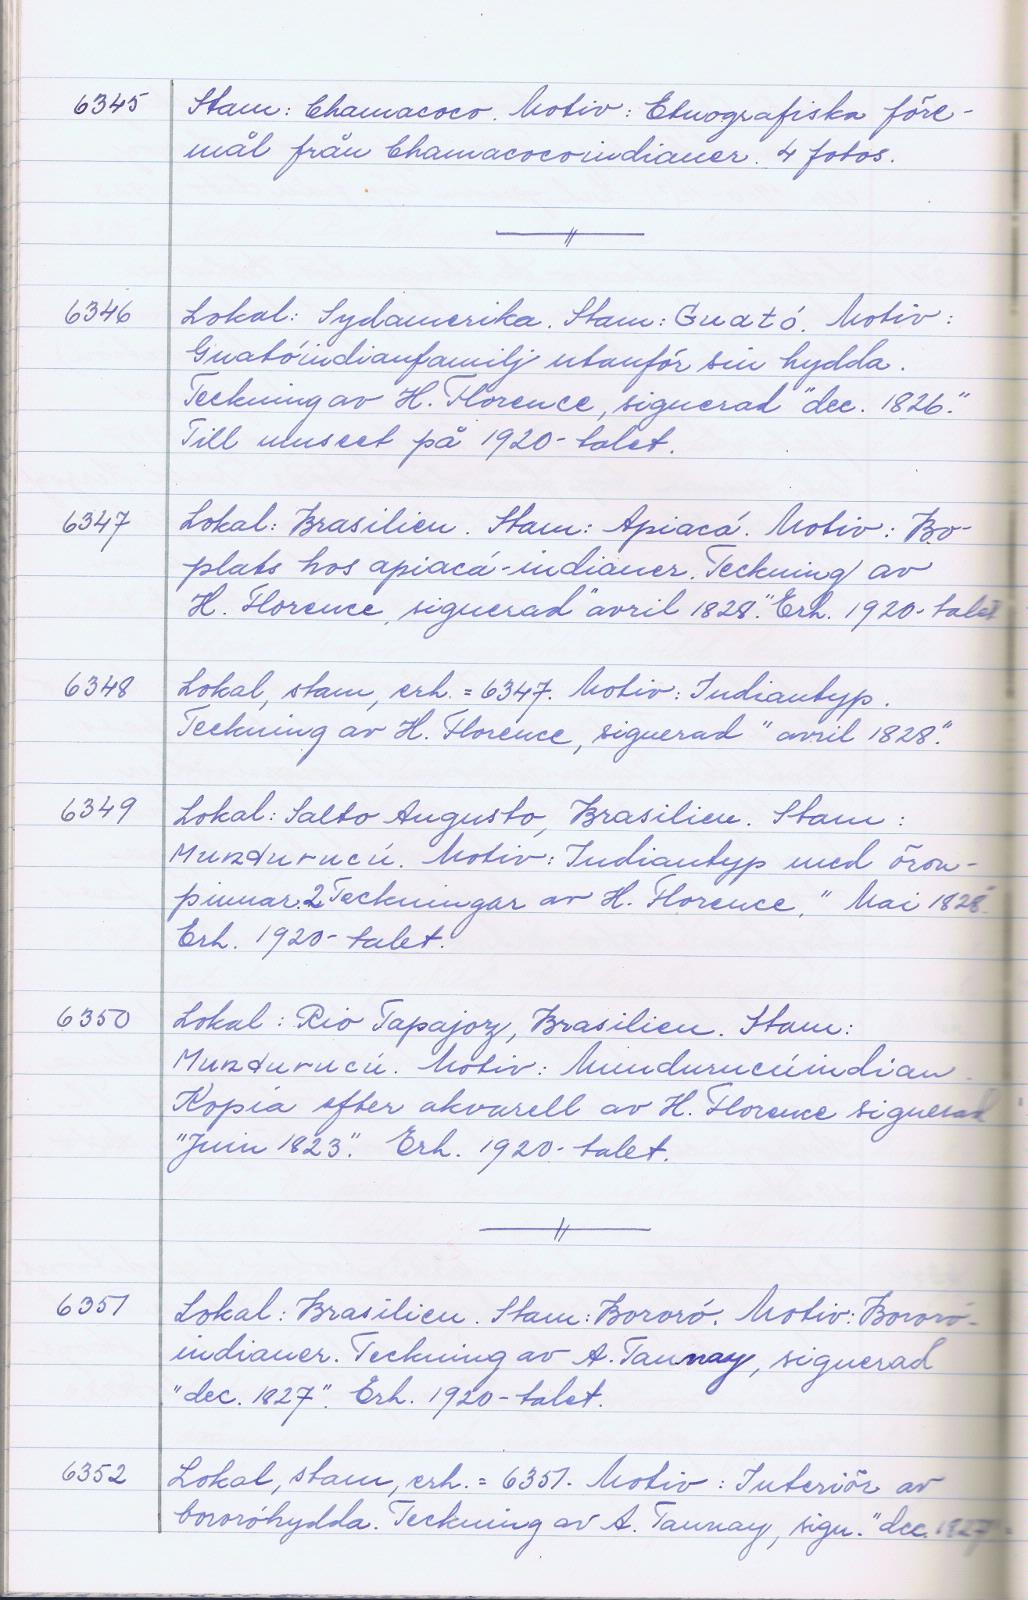 6345 Stam: Chamacoco. Motiv: Etnografiska före-
mål från Chamacocoindianer. 4 fotos.
6346 Lokal: Sydamerika. Stam: Guató. Motiv:
Guatóindianfamilj utanför sin hydda.
Teckning av H. Florence, signerad "dec. 1826."
Till museet på 1920-talet.
6347 Lokal: Brasilien. Stam: Apiacá. Motiv: Bo-
plats hos apiacá-indianer. Teckning av
H. Florence, signerad "avril 1828". Erh. 1920-talet
6348 Lokal, stam, erh. = 6347. Motiv: Indiantyp.
Teckning av H. Florence, signerad "avril 1828".
6349 Lokal: Salto Augusto, Brasilien. Stam:
Mundurucú. Motiv: Indiantyp med öron-
pinnar. 2 Teckningar av H. Florence, "Mai 1828"
Erh. 1920-talet.
6350 Lokal: Rio Tapajoz, Brasilien. Stam:
Mundurucú. Motiv: Mundurucúindian.
Kopia efter akvarell av H. Florence signerad
"Juin 1823". Erh. 1920-talet.
6351 Lokal: Brasilien. Stam: Bororó. Motiv: Bororó-
indianer. Teckning av A. Taunay, signerad
"dec. 1827". Erh. 1920-talet.
6352 Lokal, stam, erh. = 6351. Motiv: Interiör av
bororóhydda. Teckning av A. Taunay, sign. "dec. 1827"